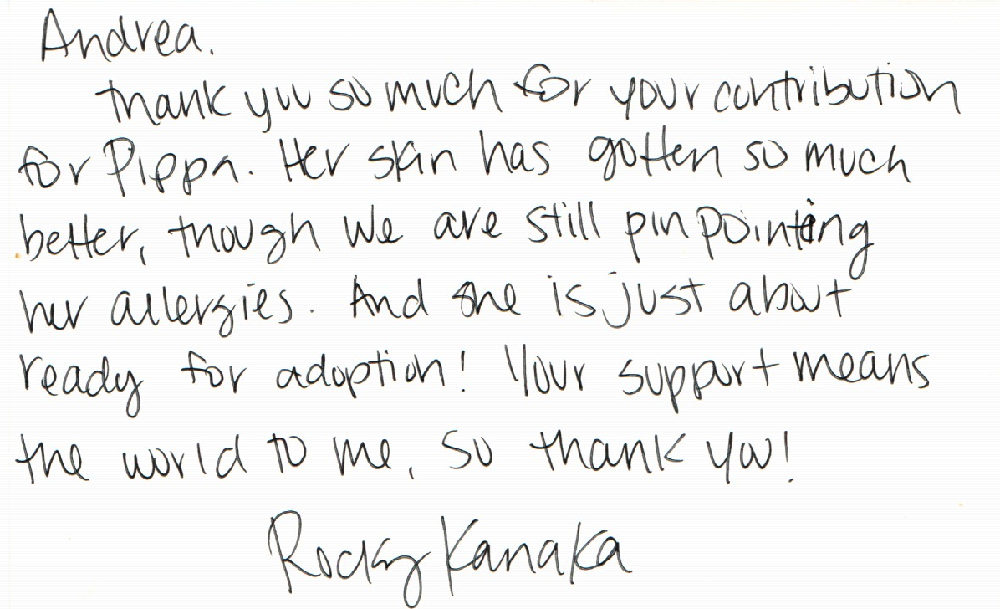 Andrea.
thank you so much for your contribution
for Pippa. Her skin has gotten so much
better, though we are still pinpointing
her allergies. And she is just about
ready for adoption! Your support means
the world to me, so thank you!
Rocky Kanaka